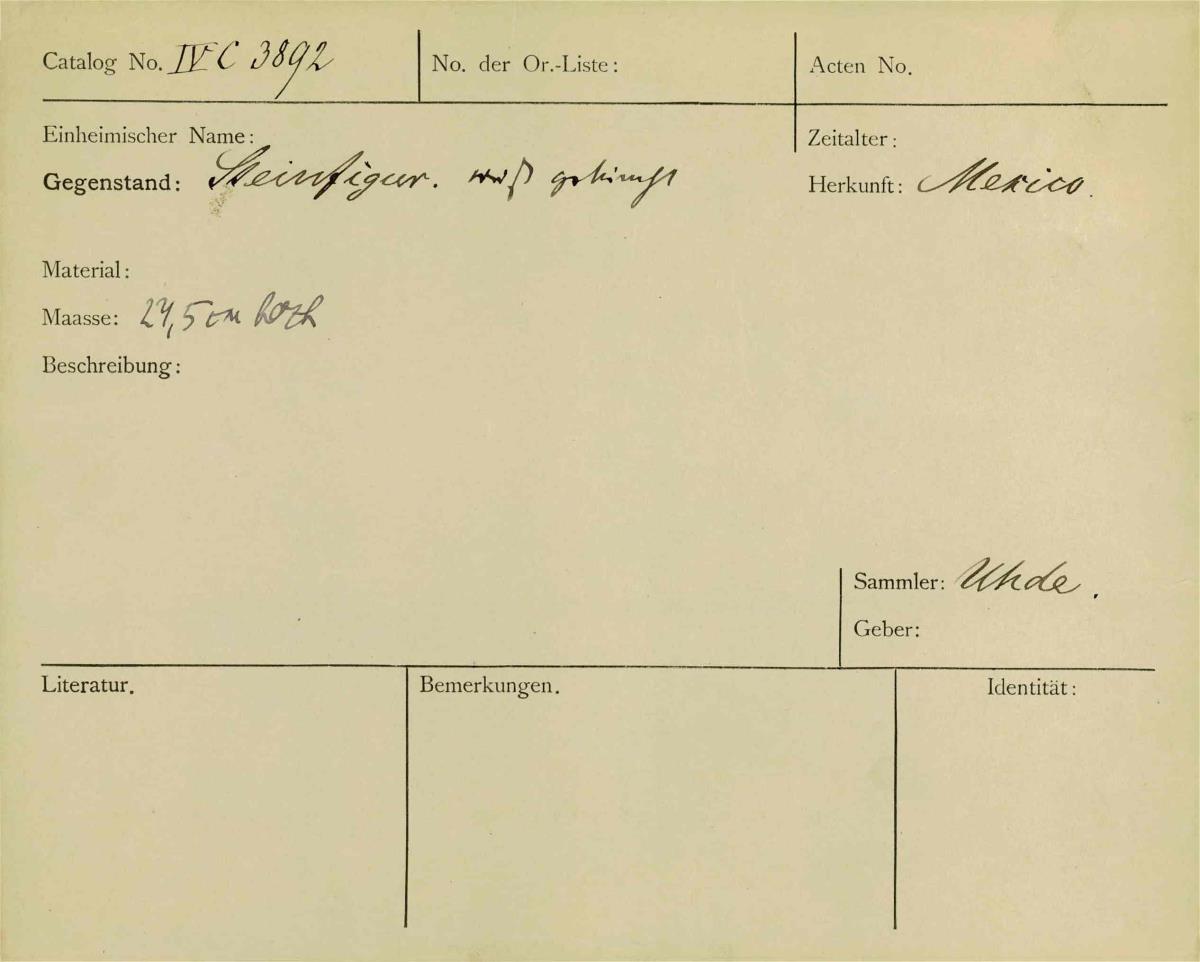 Catalog No. IV C 3892
No. der Or.-Liste:
Acten No.
Einheimischer Name:
Zeitalter:
Gegenstand: Steinfigur.
Herkunft: Mexico.
Material:
Maasse: 27,5 cm hoch
Beschreibung:
Sammler: Uhde.
Geber:
Literatur.
Bemerkungen.
Identität: